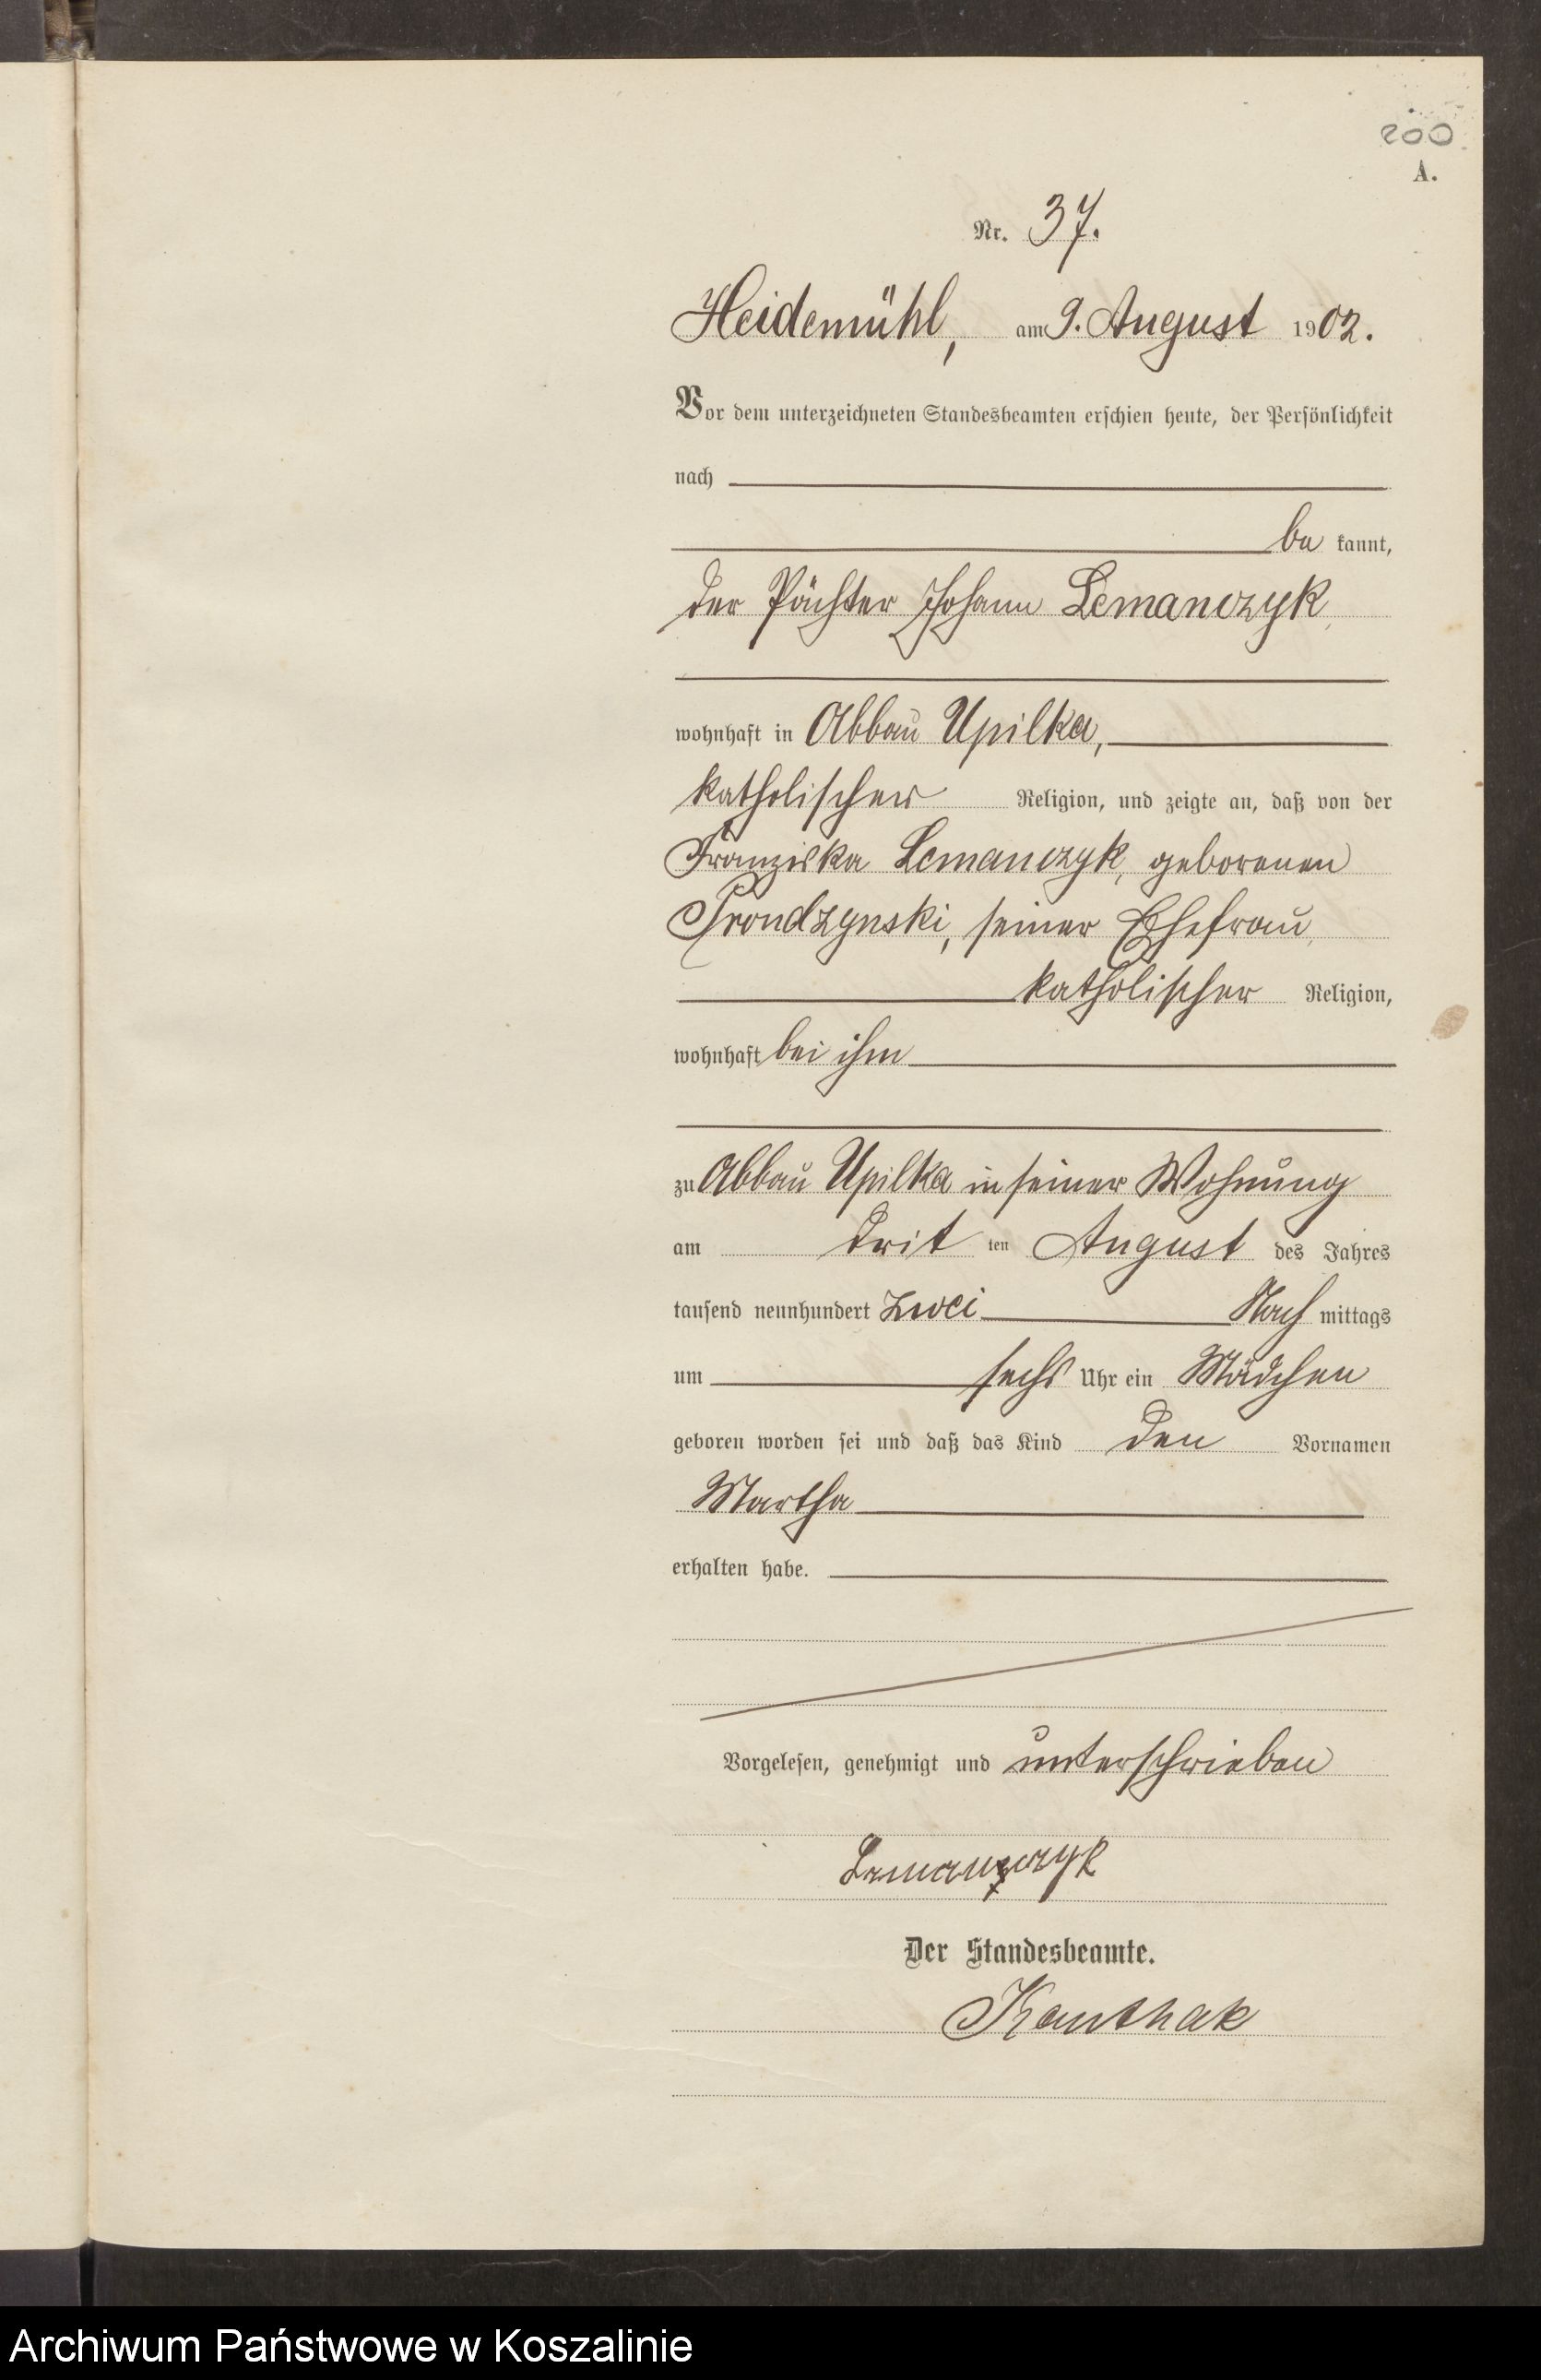 200
A.
Nr. 37.
Heidemühl, am 9. August 1902.
Vor dem unterzeichneten Standesbeamten erschien heute, der Persönlichkeit
nach
be kannt,
der Pächter Johann Lemanczyk,
wohnhaft in Abbau Upilka,
katholischer Religion, und zeigte an, daß von der
Franziska Lemanczyk, geborenen
Prondzynski, seiner Ehefrau,
katholischer Religion,
wohnhaft bei ihm
zu Abbau Upilka in seiner Wohnung
am drit ten August des Jahres
tausend neunhundert zwei Nach mittags
um sechs Uhr ein Mädchen
geboren worden sei und daß das Kind den Vornamen
Martha
erhalten habe.
Vorgelesen, genehmigt und unterschrieben
Lemanczyk
Der Standesbeamte.
Kauthak
Archiwum Państwowe w Koszalinie